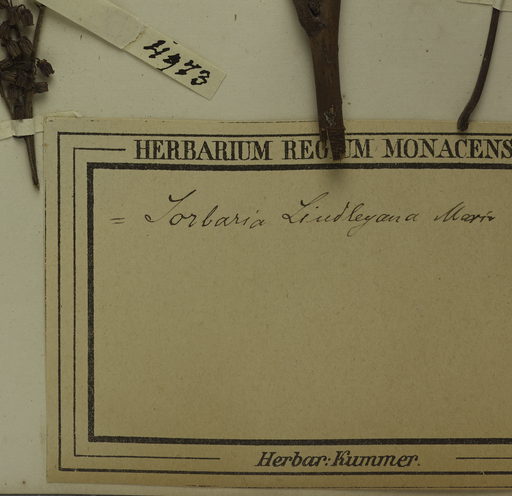 4973
HERBARIUM REGIUM MONACENS
= Sorbaria Lindleyana Maxim
Herbar: Kummer.